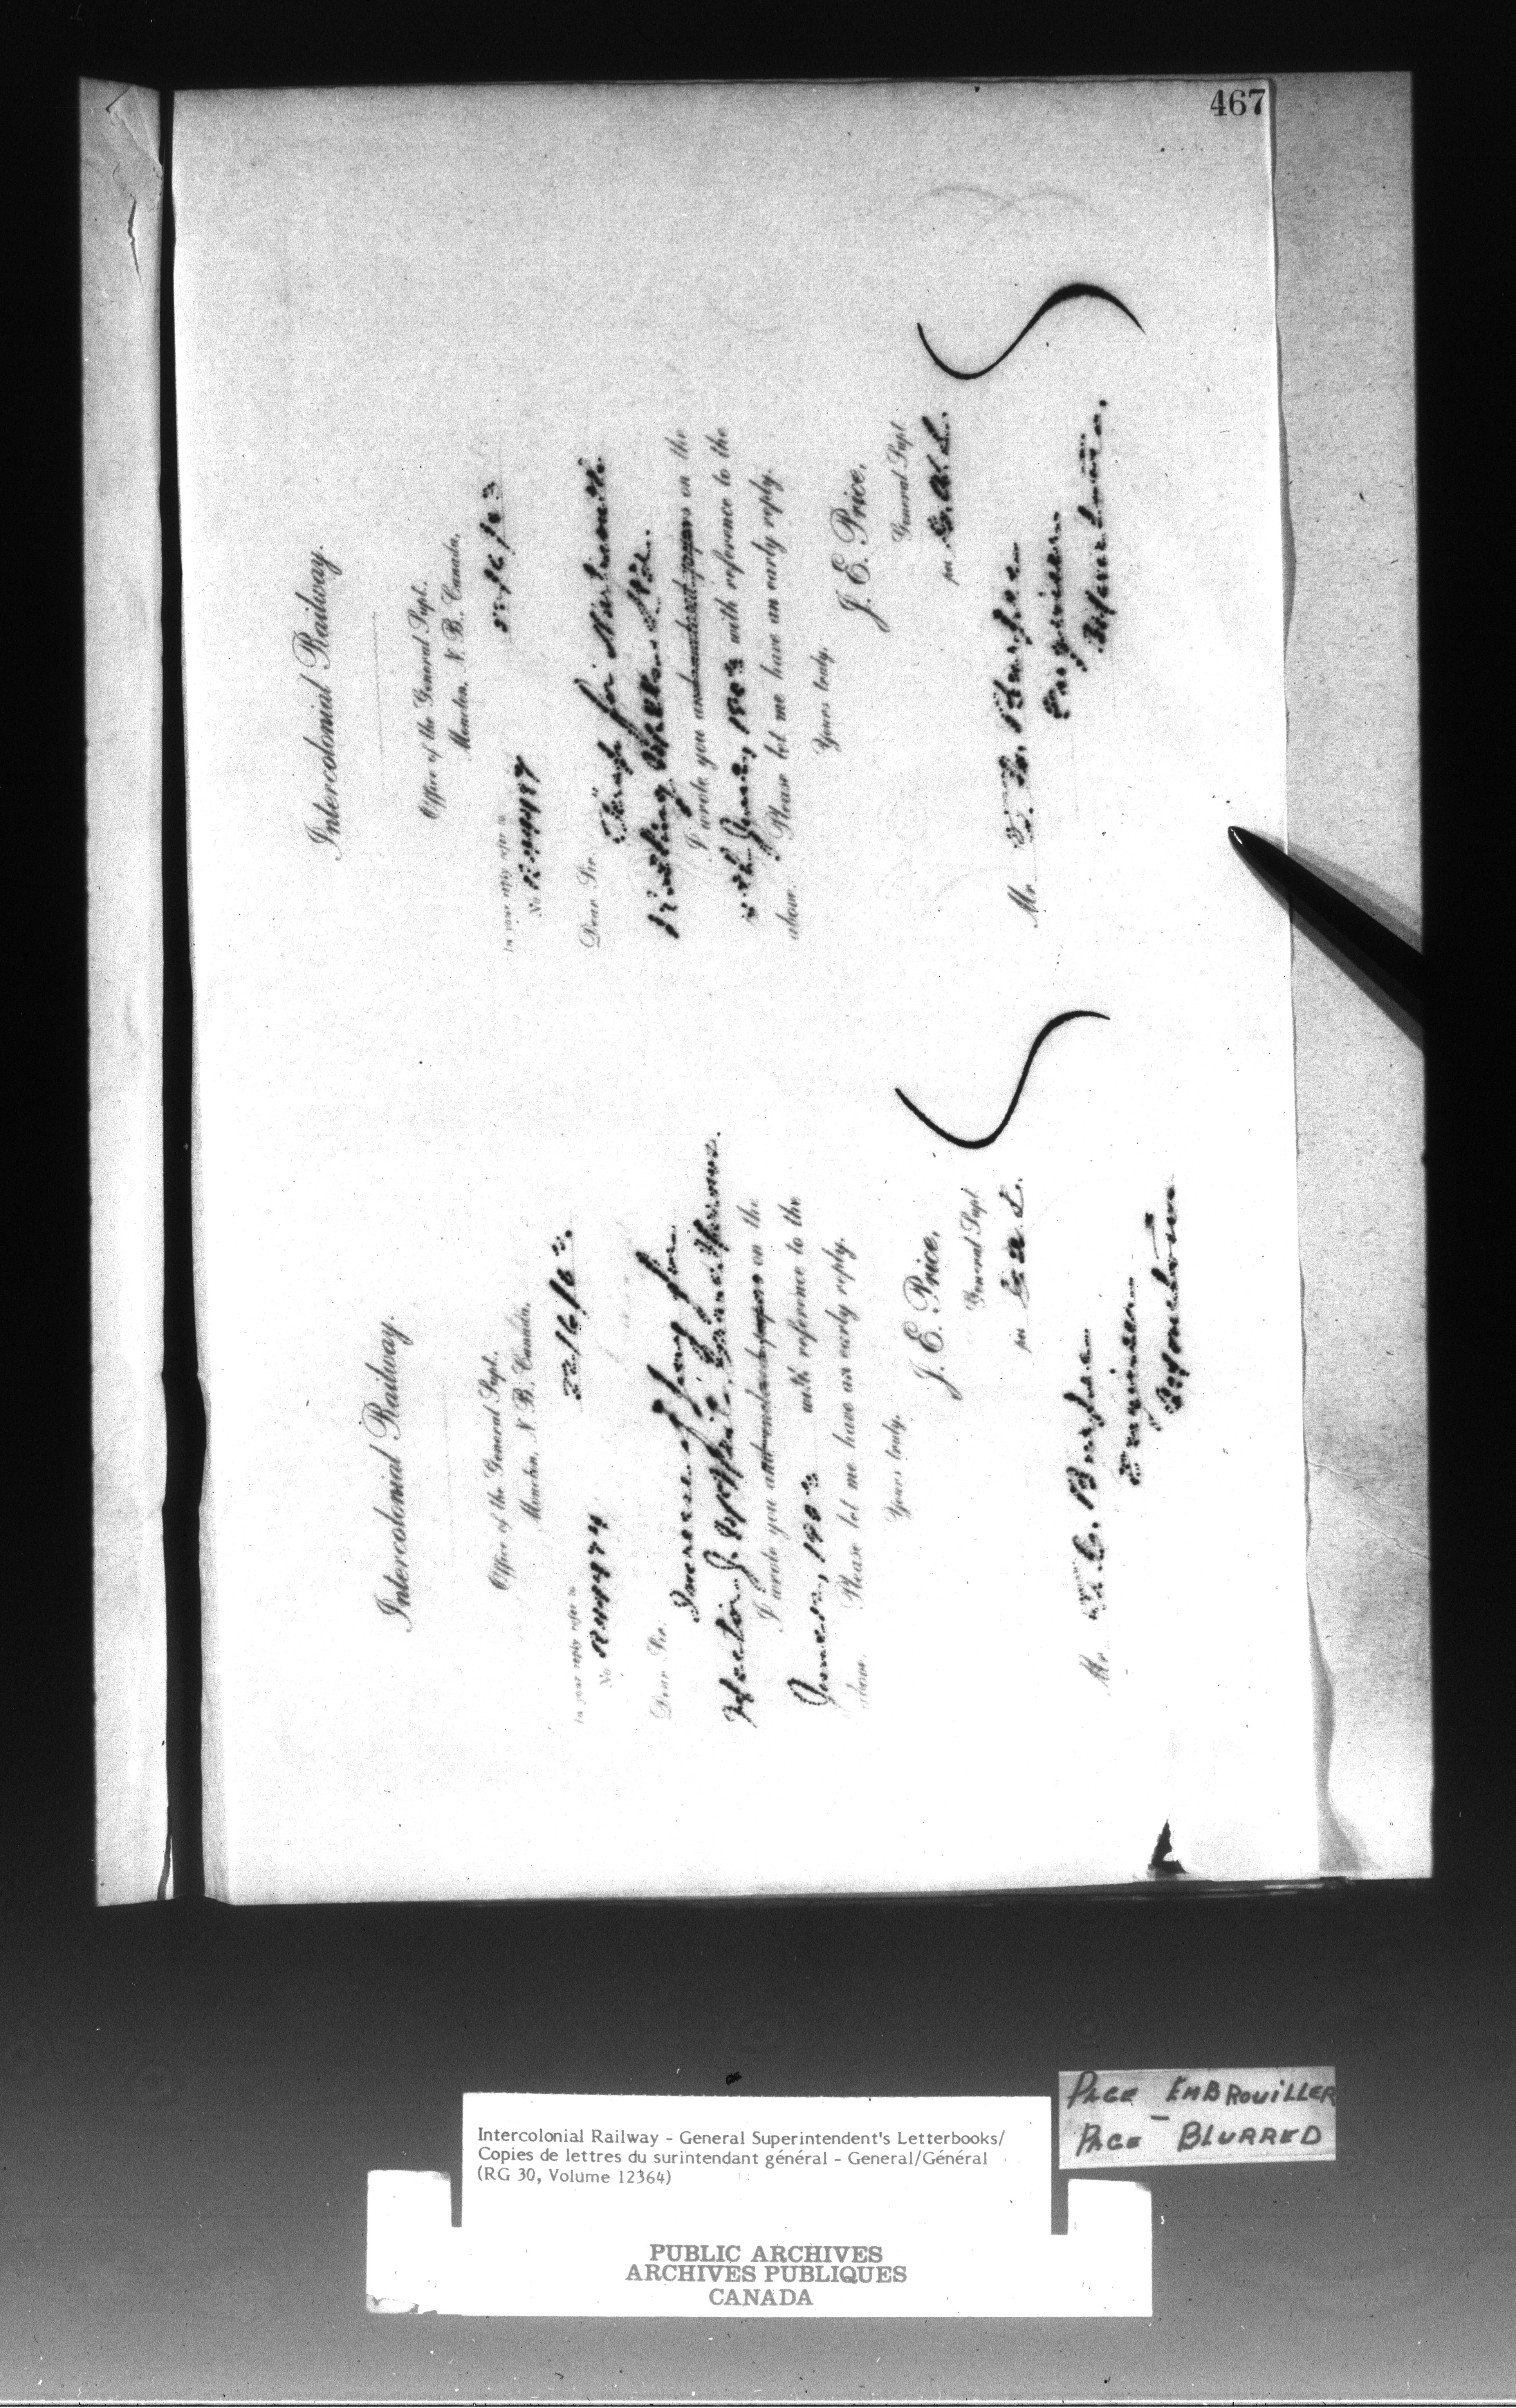 467
Intercolonial Railway.
Office of the General Supt.
Moncton, N. B., Canada,
22/6/03.
In your reply refer to
No. R44974
Dear Sir:
Increase of pay for
Hector J.
I wrote you and endorsed papers on the
June, 1903 with reference to the
above. Please let me have an early reply.
Yours truly,
J. E. Price,
General Supt
per
Mr. T. C. Burpee
Engineer
Moncton
Intercolonial Railway.
Office of the General Supt.
Moncton, N. B., Canada,
22/6/03
In your reply refer to
No.
Dear Sir:
for Dartmouth
I wrote you and endorsed papers on the
June, 1903 with reference to the
above. Please let me have an early reply.
Yours truly,
J. E. Price,
General Supt
per
Mr. T. C. Burpee
Engineer
Moncton.
PAGE EMBROUILLER
-
PAGE BLURRED
Intercolonial Railway - General Superintendent's Letterbooks/
Copies de lettres du surintendant général - General/Général
(RG 30, Volume 12364)
PUBLIC ARCHIVES
ARCHIVES PUBLIQUES
CANADA